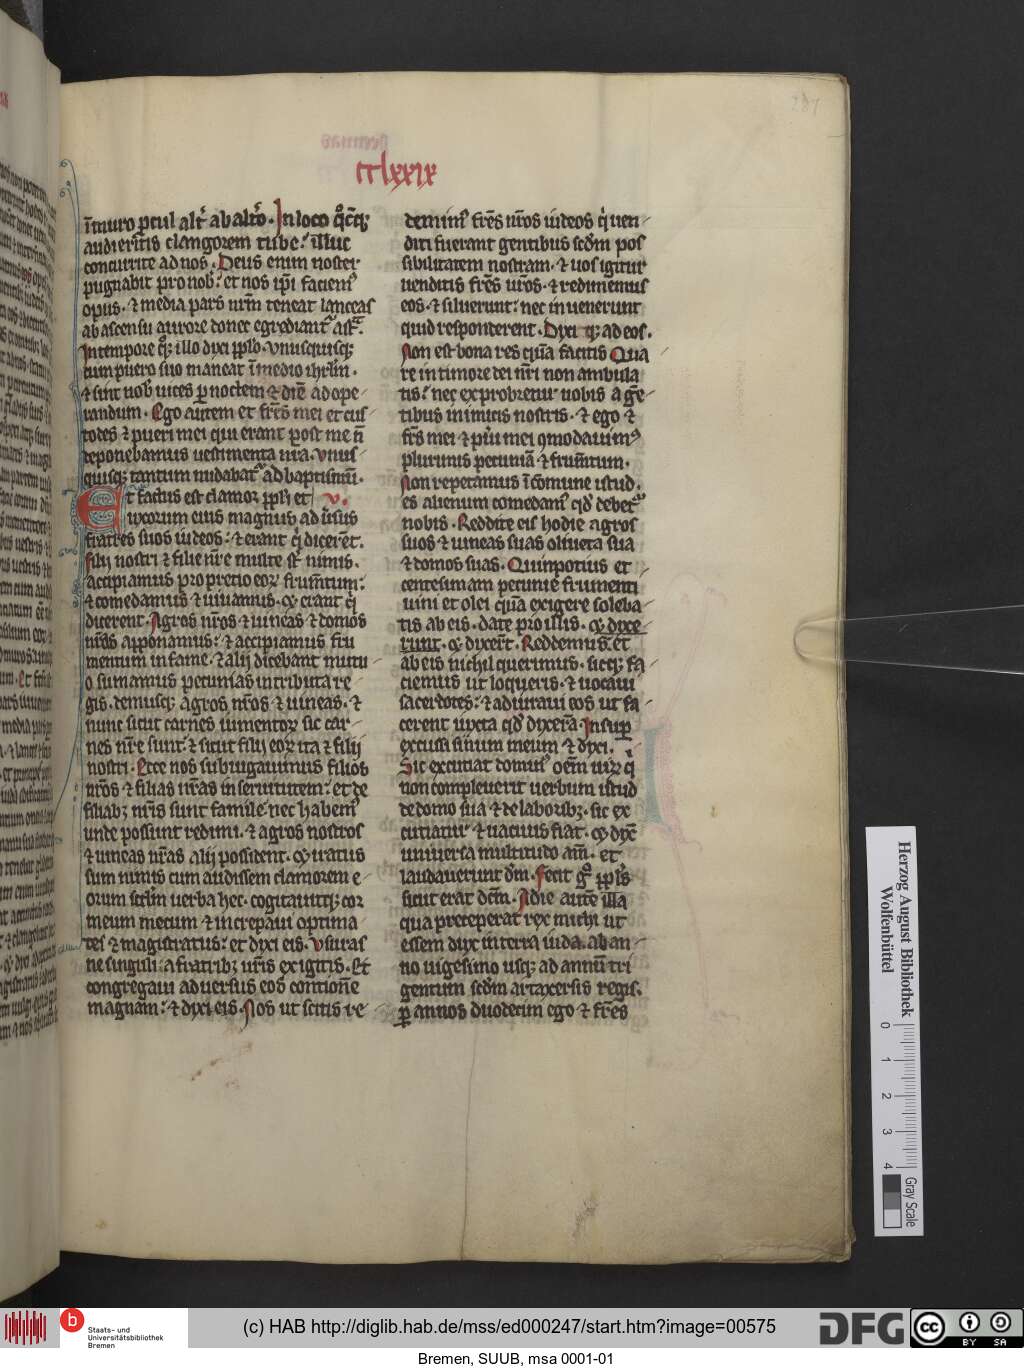 287
cclxxix
ī muro ꝓcul alt᷑ ab altō. In loco qͦcūqꝫ
audieritis clangorem tube: illuc
concurrite ad nos. Deus enim noster
pugnabit pro nob: et nos ip̄i faciemꝰ
opus. ⁊ media pars nr̄m teneat lanceas
ab ascensu aurore donec egrediant᷑ astª.
In tempore qꝫ illo dixi pp̄lo. Vnusquisqꝫ
cum puero suo maneat ī medio ihrl̄m.
⁊ sint nob uices ꝑ noctem ⁊ diē ad ope-
randum. Ego autem et fr̄s mei et cus-
todes ⁊ pueri mei qui erant post me n̄
deponebamus uestimenta nr̄a. Vnus-
quisqꝫ tantum nudabat᷑ ad baptismū.
Et factus est clamor pp̄li et v.
uxorum eius magnus aduˢsus
fratres suos iudeos: ⁊ erant qi dicerēt.
filij nostri ⁊ filie nr̄e multe st̄ nimis.
accipiamus pro precio eoꝝ frumētum:
⁊ comedamus ⁊ uiuamus. ⁊ erant qi
dicerent. Agros nr̄os ⁊ uineas ⁊ domos
nr̄as apponamus: ⁊ accipiamus fru
mentum in fame. ⁊ alij dicebant mutu-
o sumamus pecunias in tributa re
gis. demusqꝫ agros nr̄os ⁊ uineas. ⁊
nunc sicut carnes iumentoꝝ sic car-
nes nr̄e sunt: ⁊ sicut filij eoꝝ ita ⁊ filij
nostri. Ecce nos subiugauimus filios
nr̄os ⁊ filias nr̄as in seruitutem: et de
filiabꝫ nr̄is sunt famule nec habemꝰ
unde possunt redimi. ⁊ agros nostros
⁊ uineas nr̄as alij possident. ⁊ iratus
sum nimis cum audissem clamorem e-
orum scd̄m uerba hec. cogitauitqꝫ cor
meum mecum ⁊ increpaui optima
tes ⁊ magistratus: et dixi eis. Vsuras
ne singuli a fratribꝫ ur̄is exigitis. Et
congregaui aduersus eos contionē
magnam: ⁊ dixi eis. Nos ut scitis re-
demimꝰ fr̄es nr̄os iudeos qi uen-
diti fuerant gentibus scd̄m pos
sibilitatem nostram. ⁊ uos igitur
uenditis fr̄es ur̄os. ⁊ redimemus
eos. ⁊ siluerunt: nec inuenerunt
quid responderent. Dixi qꝫ ad eos.
Non est bona res quā facitis Qua-
re in timore dei nr̄i non ambula
tis: nec exprobretur uobis a ge-
tibus inimicis nostris. ⁊ ego ⁊
fr̄s mei ⁊ pu̇i mei ꝯmodauimꝰ
plurimis pecuniā ⁊ frum̄tum.
Non repetamus ī cōmune istud.
es alienum comedamꝰ qd̄ debet᷑
nobis. Reddite eis hodie agros
suos ⁊ uineas suas oliueta sua
⁊ domos suas. Quinpotius et
centesimam pecunie frumenti
uini et olei quā exigere soleba-
tis ab eis. date pro illis. ⁊ dixe
runt. ⁊ dixer̄t. Reddemus. et
ab eis nichil querimus. sicqꝫ fa-
ciemus ut loqueris. ⁊ uocaui
sacerdotes: ⁊ adiuraui eos ut fa-
cerent iuxta qd̄ dixerā. Insuꝑ
excussi sinum meum ⁊ dixi.
Sic excutiat domus oēm uiꝝ qi
non compleuerit uerbum istud
de domo sua ⁊ de laboribꝫ. sic ex
cutiatur ⁊ uacuus fiat. ⁊ dix̄
uniuersa multitudo am̄. et
laudauerunt dm̄. Fecit gͦ pp̄ls
sicut erat dcm̄. A die autē illa
qua preceperat rex michi ut
essem dux in terra iuda. ab an-
no uigesimo usqꝫ ad annū tri
gentum scd̄m artaxersis regis.
ꝑ annos duodecim ego ⁊ fr̄es
Herzog August Bibliothek
Wolfenbüttel
0 1 2 3 4
Gray Scale
b Staats- und
Universitätsbibliothek
Bremen
(c) HAB http://diglib.hab.de/mss/ed000247/start.htm?image=00575
DFG
cc BY SA
Bremen, SUUB, msa 0001-01